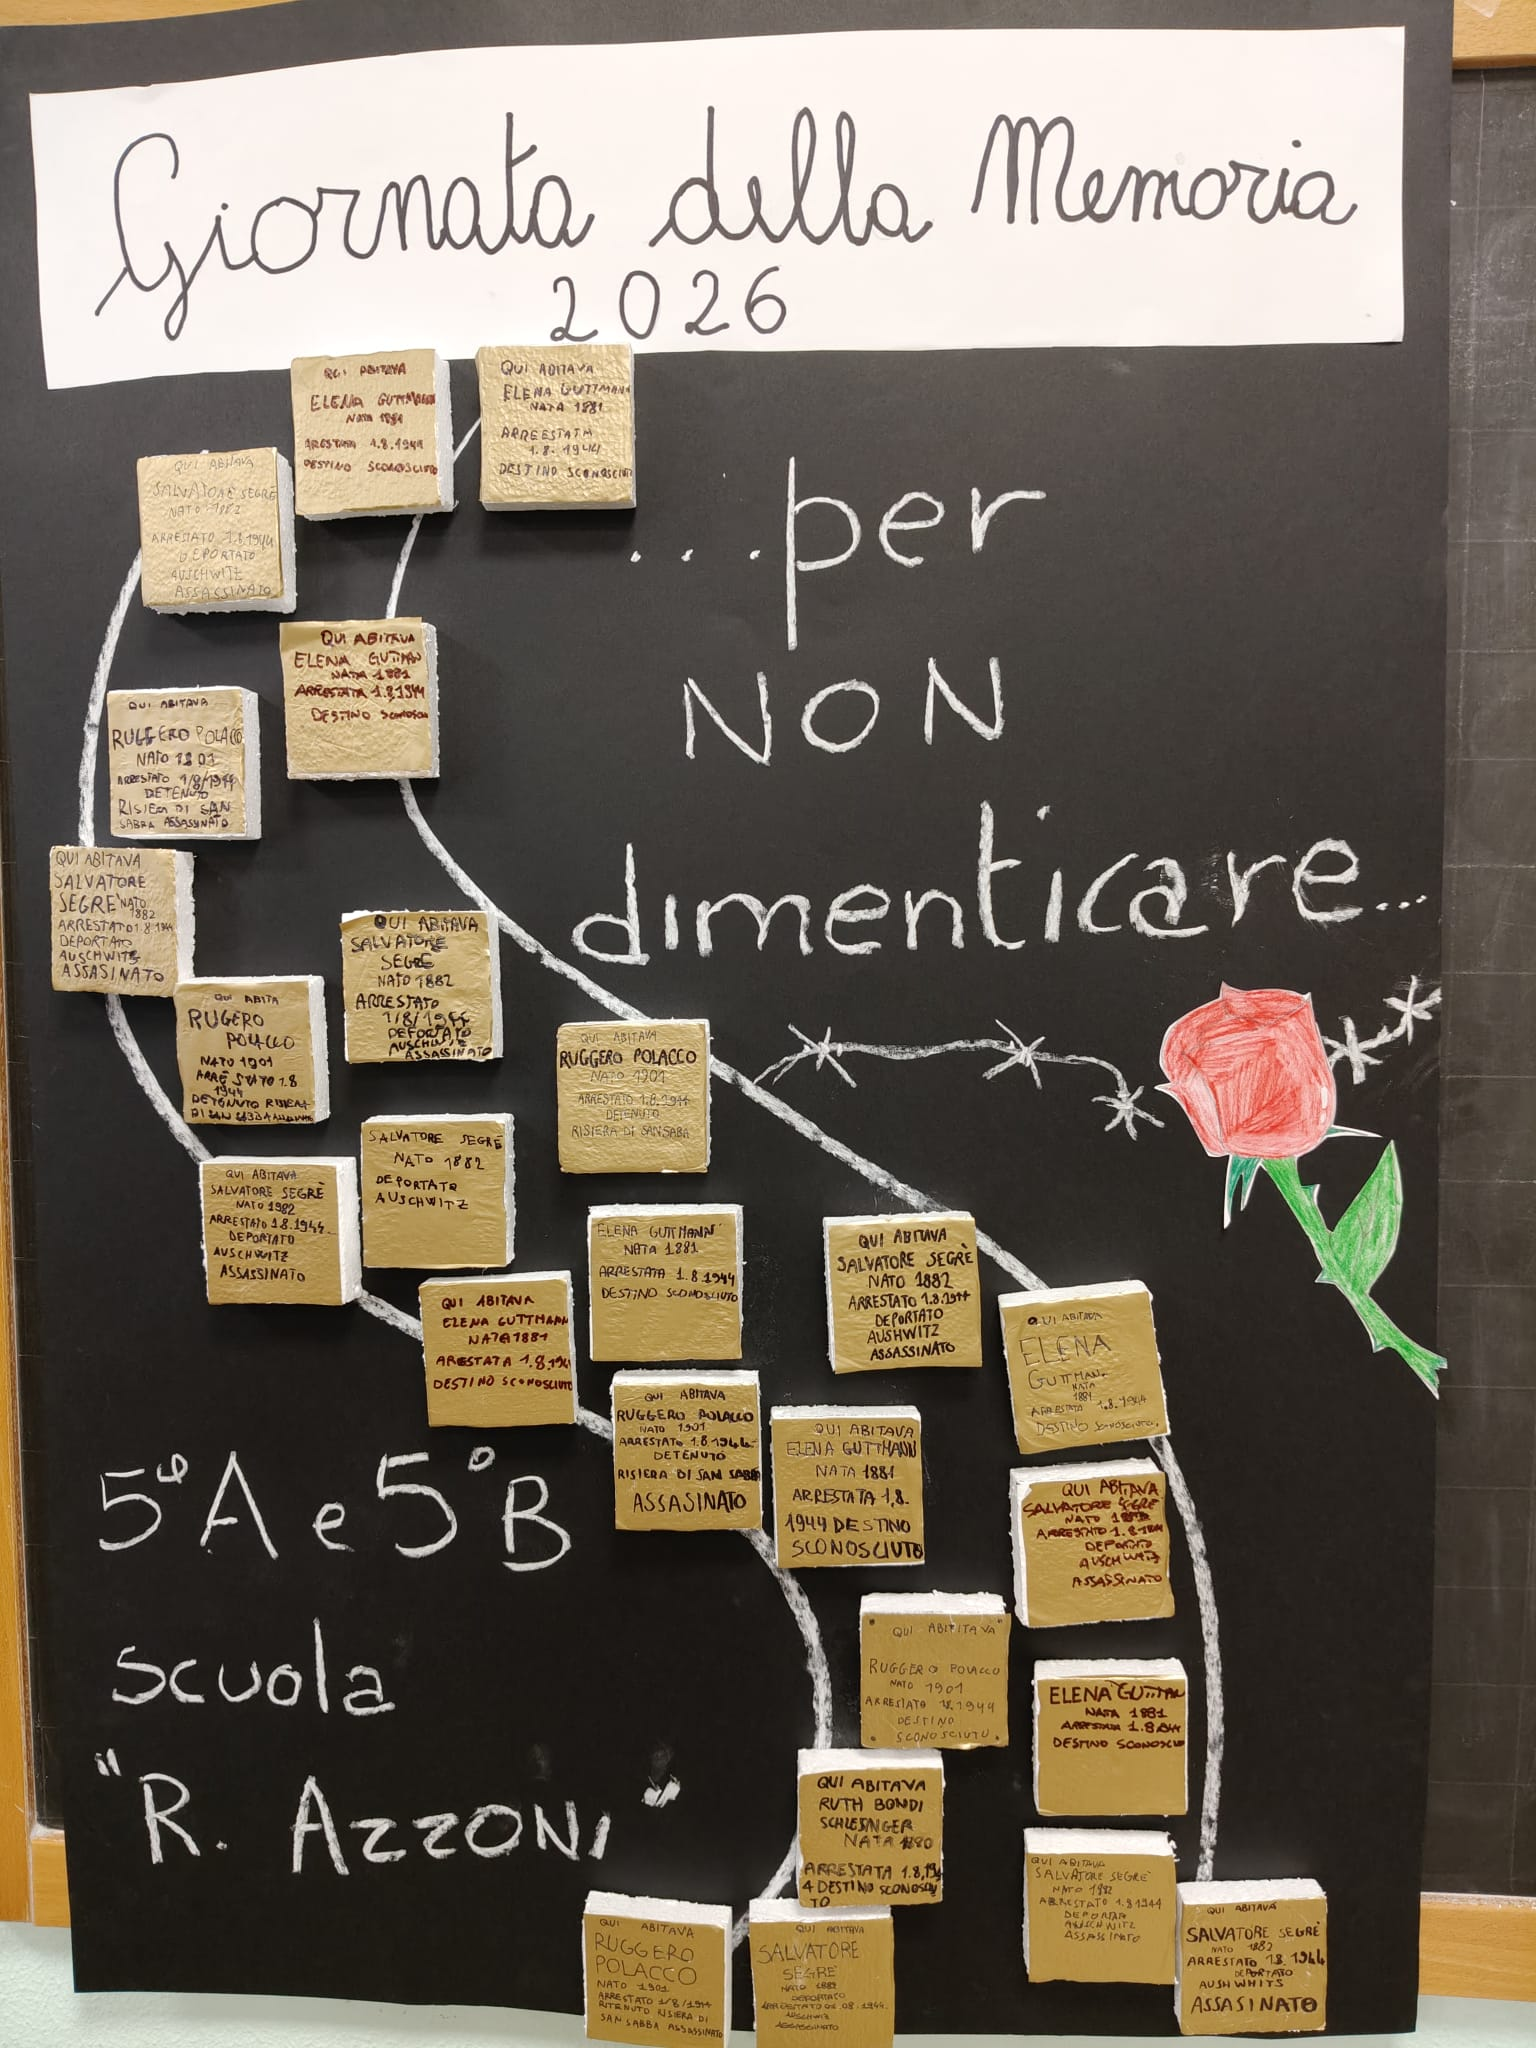 Giornata della Memoria
2026
QUI ABITAVA
ELENA GUTTMANN
NATA 1881
ARESTATA 1.8.1944
DESTINO SCONOSCIUTO
QUI ABITAVA
ELENA GUTTMANN
NATA 1881
ARREESTATA
1.8.1944
DESTINO SCONOSCIUT
QUI ABITAVA
SALVATORE SEGRÈ
NATO 1882
ARRESTATO 1.8.1944
DEPORTATO
AUSCHWITZ
ASSASSINATO
....per
NON
dimenticare...
QUI ABITAVA
ELENA GUTTMAN
NATA 1881
ARRESTATA 1.8.1944
DESTINO
QUI ABITAVA
RUGGERO POLACCO
NATO 1901
ARRESTATO 1/8/1944
DETENUTO
RISIERA DI SAN
SABBA ASSASSINATO
QUI ABITAVA
SALVATORE
SEGRÈ NATO
1882
ARRESTATO 1.8.1944
DEPORTATO
AUSCHWITZ
ASSASINATO
QUI ABITAVA
SALVATORE
SEGRÈ
NATO 1882
ARRESTATO
1/8/1944
DEPORTATO
AUSCHWITZ
ASSASSINATO
QUI ABITA
RUGERO
POLACCO
NATO 1901
ARRESTATO 1.8
1944
DETENUTO RISIERA
DI SAN
QUI ABITAVA
RUGGERO POLACCO
NATO 1901
ARRESTATO 1.8.1944
DETENUTO
RISIERA DI SANSABA
SALVATORE SEGRÈ
NATO 1882
DEPORTATO
AUSCHWITZ
QUI ABITAVA
SALVATORE SEGRÈ
NATO 1982
ARRESTATO 1.8.1944.
DEPORTATO
AUSCHWITZ
ASSASSINATO
ELENA GUTTMANN
NATA 1881
ARRESTATA 1.8.1944
DESTINO SCONOSCIUTO
QUI ABITAVA
SALVATORE SEGRÈ
NATO 1882
ARRESTATO 1.8.1944
DEPORTATO
AUSHWITZ
ASSASSINATO
QUI ABITAVA
ELENA GUTTMANN
NATA 1881
ARESTATA 1.8.194
DESTINO SCONOSCIUTO
QUI ABITAVA
ELENA
GUTTMAN
NATA
1881
ARRESTATA 1.8.1944
DESTINO SCONOSCIUTO
QUI ABITAVA
RUGGERO POLACCO
NATO 1901
ARRESTATO 1.8.1944
DETENUTO
RISIERA DI SAN SABBA
ASSASINATO
QUI ABITAVA
ELENA GUTTMANN
NATA 1881
ARRESTATA 1.8.
1944 DESTINO
SCONOSCIUTO
QUI ABITAVA
SALVATORE SEGRÈ
NATO
ARRESTATO 1.8.1944
DEPORTATO
AUSCHWITZ
ASSASSINATO
5ª A e 5ª B
scuola
"R. AZZONI"
QUI ABIBITAVA
RUGGERO POLACCO
NATO 1901
ARRESTATO 1.8.1944
DESTINO
SCONOSCIUTO
ELENA GUTTMAN
NATA 1881
ARRESTATA 1.8.1944
DESTINO SCONOSCIU
QUI ABITAVA
RUTH BONDI
SCHLESINGER
NATA 1880
ARRESTATA 1.8.194
4 DESTINO SCONOSCIU
TO
QUI ABITAVA
SALVATORE SEGRÈ
NATO 1882
ARRESTATO 1.8.1944
DEPORTATO
AUSCHWITZ
ASSASSINATO
QUI ABITAVA
SALVATORE SEGRÈ
NATO 1882
ARRESTATO 1.8.1944
DEPORTATO
AUSHWITS
ASSASINATO
QUI ABITAVA
RUGGERO
POLACCO
NATO 1901
ARRESTATO 1/8/1944
RITENUTO RISIERA DI
SAN SABBA ASSASSINATO
QUI ABITAVA
SALVATORE
SEGRÈ
NATO
DEPORTATO
ARRESTATO 01.08.1944.
AUSCHWIZ
ASSASSINATO